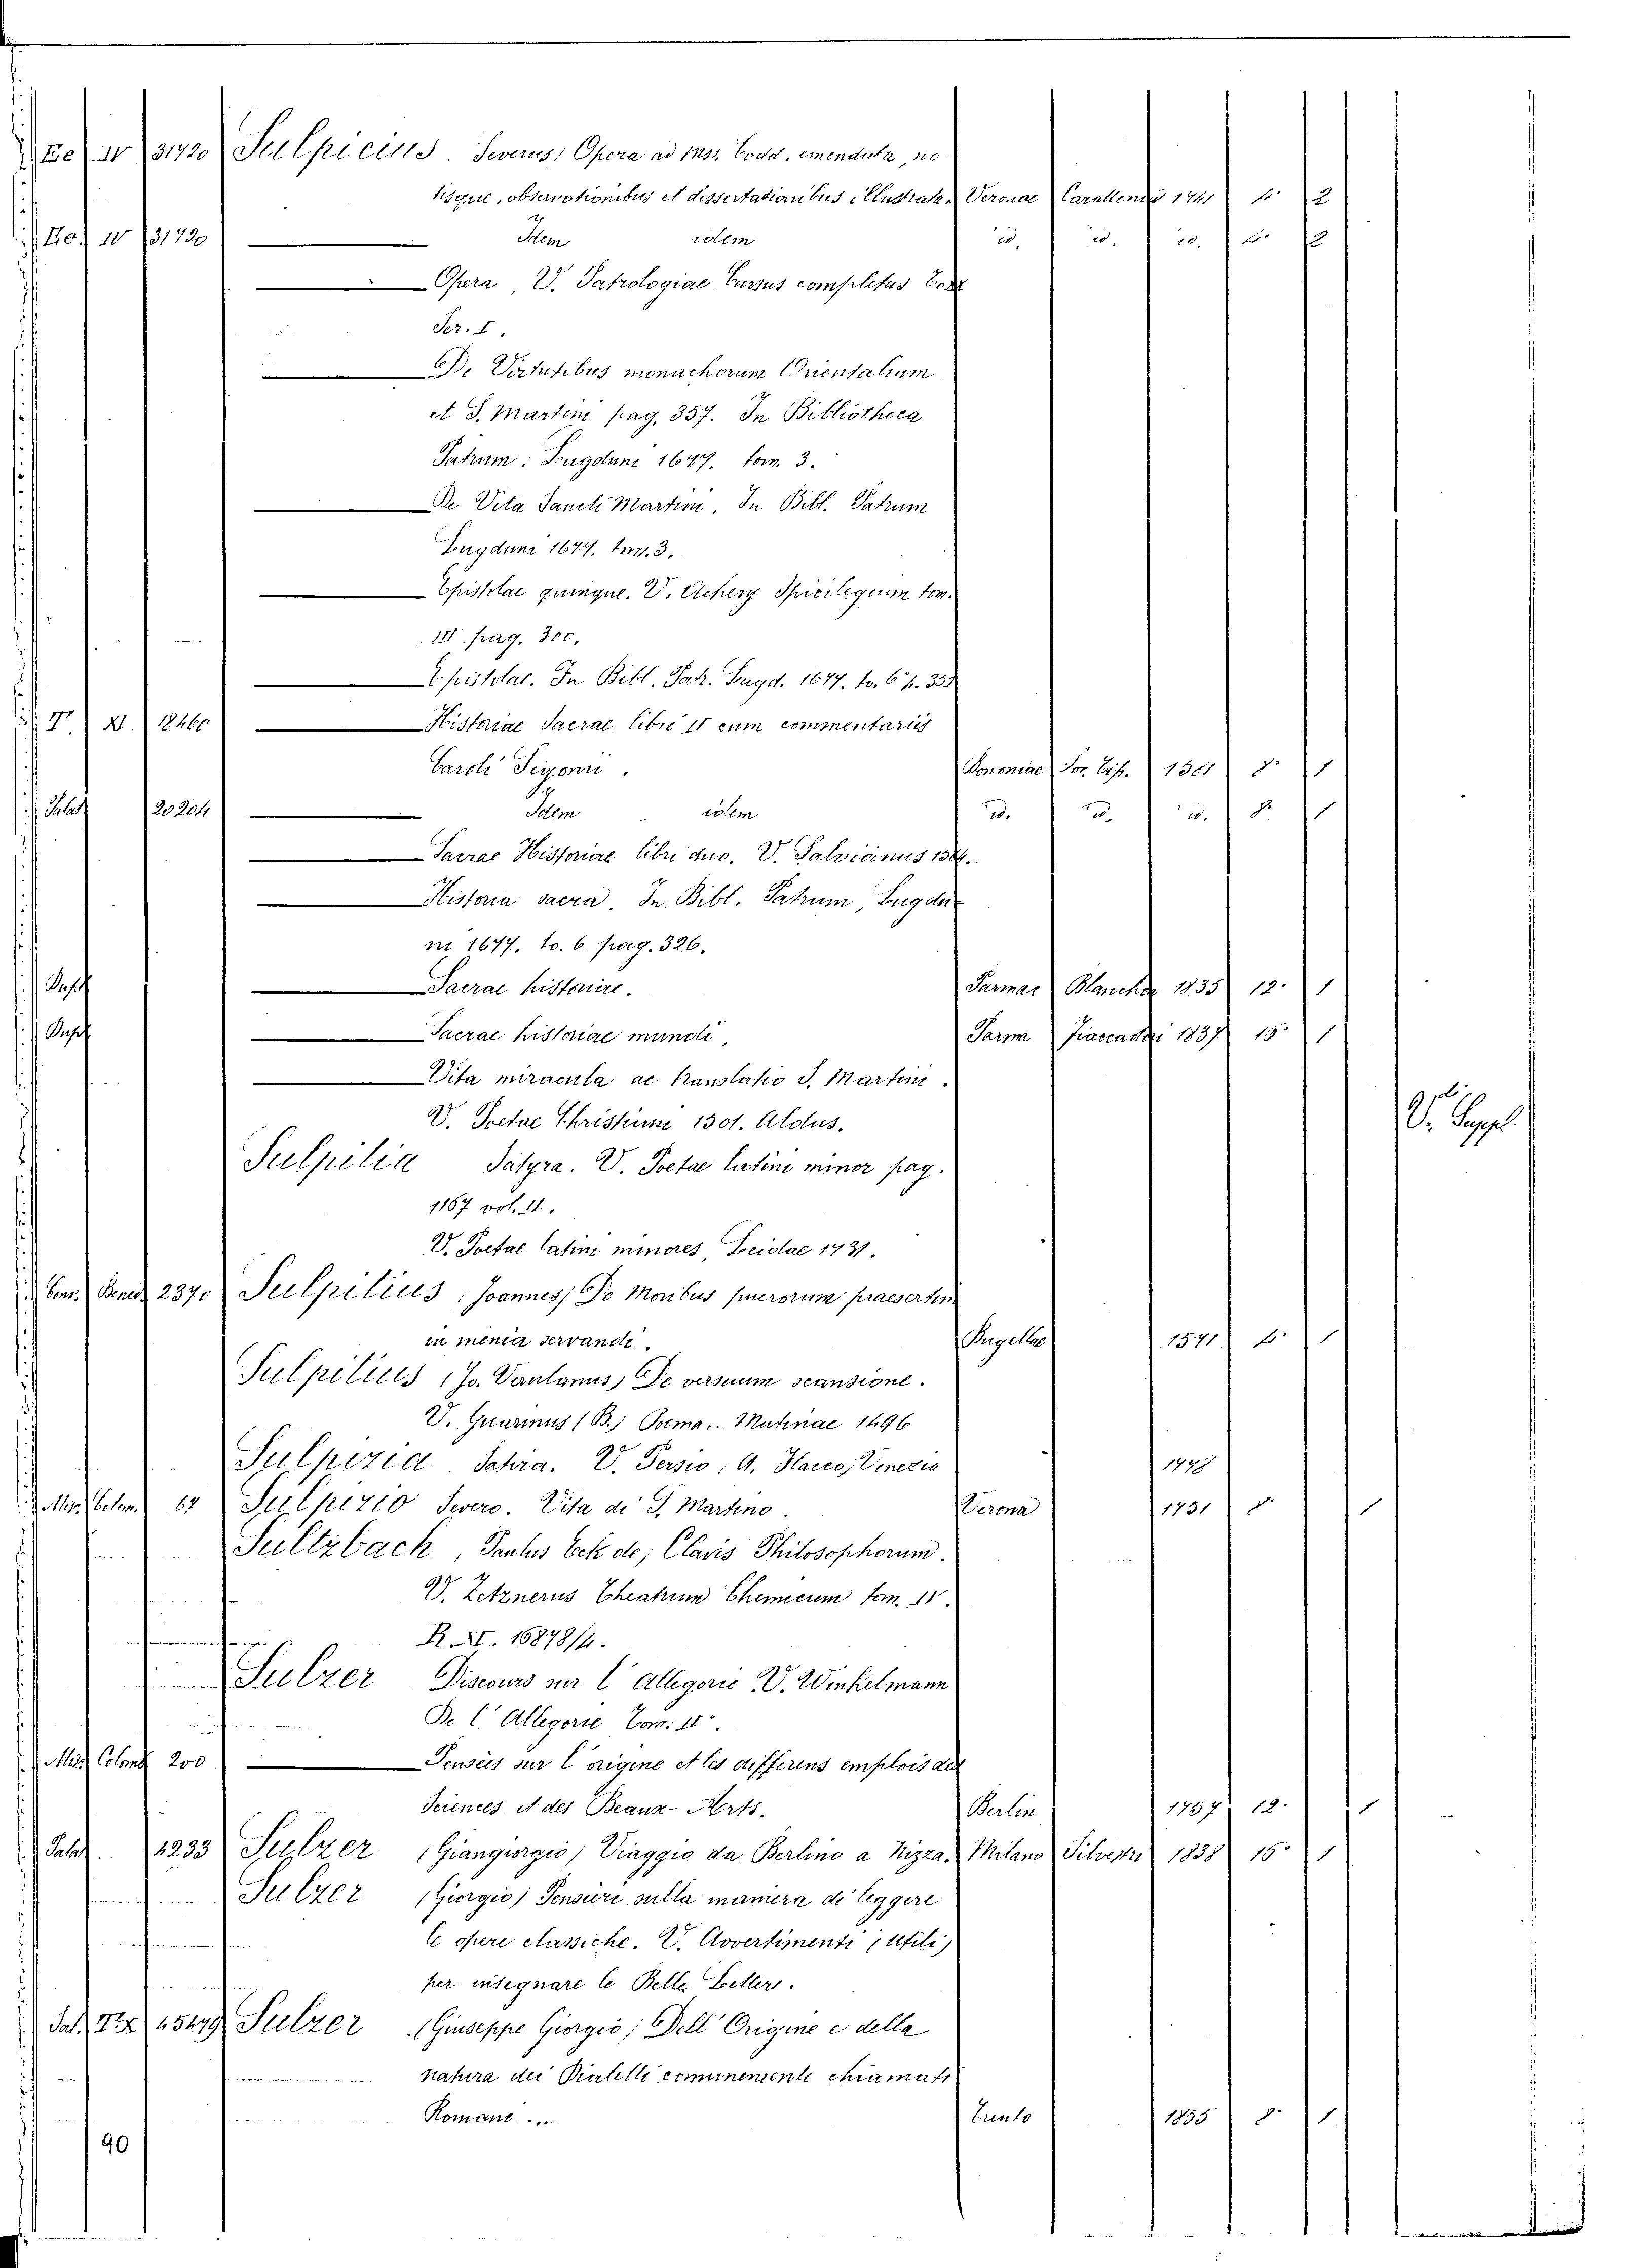 Re IV 31720 Sulpicius Severus: Opera ad mss. Codd. emendata, no
tisque, observationibus et dissertationibus illustrata. Veronae Carattonis 1741 4° 2
Re IV 31730 Idem idem id. id. id. 4° 2
Opera, V. Patrologiae Cursus completus Tom
Ser. I.
De Virtutibus monachorum Orientalium
et S. Martini pag. 357. In Bibliotheca
Patrum: Lugduni 1677. tom. 3.
De Vita Sancti Martini. In Bibl. Patrum
Lugduni 1677. tom. 3.
Epistolae quinque. V. Achery Spicilegium tom.
III pag. 310.
Epistolae. In Bibl. Patr. Lugd. 1677. to. 6 p. 355
T. XI 18460 Historiae Sacrae libri II cum commentariis
Caroli Sigonii. Bononiae Soc. Tip. 1581 8° 1
Palat 20204 Idem idem id. id. id. 8° 1
Sacrae Historiae libri duo. V. Salvianus 1564.
Historia sacra. In Bibl. Patrum, Lugdu
ni 1677. to. 6. pag. 326.
Sacrae historiae. Parmae Blanchon 1835 12° 1
Sacrae historiae mundi, Parma Fiaccadori 1837 15° 1
Vita miracula ac translatio S. Martini.
V. Poetae Christiani 1501. Aldus.
V. Suppl.
Sulpilia Satyra. V. Poetae latini minor pag.
1167 vol. II.
V. Poetae latini minores, Leidae 1731.
Cons. Bened. 2370 Sulpitius (Joannes) De Moribus puerorum praesertim
in menia servandi. Bugellae 1571 4° 1
Sulpitius (Jo. Verulanus) De versuum scansione.
V. Guarinus (B.) Poema.. Mutinae 1496
Sulpizia Satira. V. Persio, A. Flacco, Venezia 1778
Misc. Colom. 67 Sulpizio Severo. Vita di S. Martino. Verona 1731 8° 1
Sultzbach, Paulus Eck de, Clavis Philosophorum.
V. Zetznerus Theatrum Chemicum tom. IV.
R. II. 16878/4.
Sulzer Discours sur l'Allegorie V. Winkelmann
De l'Allegorie Tom. II°.
Misc. Colomb 200 Pensées sur l'origine et les differens emplois des
Sciences et des Beaux-Arts. Berlin 1757 12° 1
Palat 1233 Sulzer (Giangiorgio) Viaggio da Berlino a Nizza. Milano Silvestri 1838 16° 1
Sulzer (Giorgio) Pensieri sulla maniera di leggere
le opere classiche. V. Avvertimenti (Utili)
per insegnare le Belle Lettere.
45479 Sulzer (Giuseppe Giorgio) Dell'Origine e della
natura dei Dialetti comunemente chiamati
Romani.... Trento 1855 8° 1
90